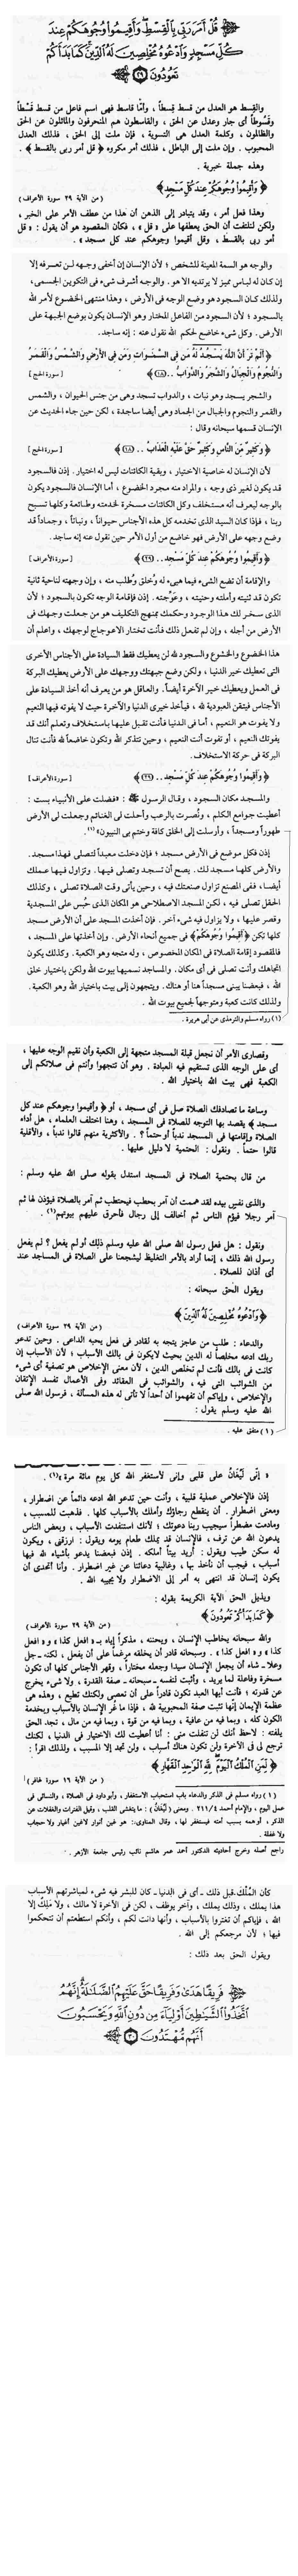 ﴿ قُلْ أَمَرَ رَبِّي بِالْقِسْطِ وَأَقِيمُوا وُجُوهَكُمْ عِندَ
كُلِّ مَسْجِدٍ وَادْعُوهُ مُخْلِصِينَ لَهُ الدِّينَ كَمَا بَدَأَكُمْ
تَعُودُونَ ٢٩ ﴾
والقسط هو العدل من قسط قِسطاً ، وأما قاسط فهى اسم فاعل من قسط قَسْطاً
وقُسوطاً أى جار وعدل عن الحق ، والقاسطون هم المنحرفون والمائلون عن الحق
والظالمون ، وكلمة العدل هى التسوية ، فإن ملت إلى الحق ، فذلك العدل
المحبوب . وإن ملت إلى الباطل ، فذلك أمر مكروه ﴿ قل أمر ربى بالقسط ﴾ .
وهذه جملة خبرية .
﴿ وَأَقِيمُوا وُجُوهَكُمْ عِندَ كُلِّ مَسْجِدٍ ﴾
( من الآية ٢٩ سورة الأعراف )
وهذا فعل أمر ، وقد يتبادر إلى الذهن أن هذا من عطف الأمر على الخبر ،
ولكن لنلتفت أن الحق يعطفها على « قل » ، فكأن المقصود هو أن يقول : « قل
أمر ربى بالقسط ، وقل أقيموا وجوهكم عند كل مسجد » .
والوجه هو السمة المعينة للشخص ؛ لأن الإنسان إن أخفى وجهه لن تعرفه إلا
إن كان له لباس مميز لا يرتديه إلا هو . والوجه أشرف شىء فى التكوين الجسمى ،
ولذلك كان السجود هو وضع الوجه فى الأرض ، وهذا منتهى الخضوع لأمر الله
بالسجود ؛ لأن السجود من الفاعل المختار وهو الإنسان يكون بوضع الجبهة على
الأرض . وكل شىء خاضع لحكم الله نقول عنه : إنه ساجد .
﴿ أَلَمْ تَرَ أَنَّ اللَّهَ يَسْجُدُ لَهُ مَن فِي السَّمَوَاتِ وَمَن فِي الْأَرْضِ وَالشَّمْسُ وَالْقَمَرُ
وَالنُّجُومُ وَالْجِبَالُ وَالشَّجَرُ وَالدَّوَابُّ .. (١٨) ﴾ [ سورة الحج ]
والشجر يسجد وهو نبات ، والدواب تسجد وهى من جنس الحيوان ، والشمس
والقمر والنجوم والجبال من الجماد وهى أيضا ساجدة ، لكن حين جاء الحديث عن
الإنسان قسمها سبحانه وقال :
﴿ وَكَثِيرٌ مِّنَ النَّاسِ وَكَثِيرٌ حَقَّ عَلَيْهِ الْعَذَابُ .. (١٨) ﴾ [ سورة الحج ]
لأن الإنسان له خاصية الاختيار ، وبقية الكائنات ليس له اختيار . إذن فالسجود
قد يكون لغير ذى وجه ، والمراد منه مجرد الخضوع ، أما الإنسان فالسجود يكون
بالوجه ليعرف أنه مستخلف وكل الكائنات مسخرة لخدمته وطائعة وكلها تسبح
ربنا ، فإذا كان السيد الذى تخدمه كل هذه الأجناس حيواناً ، ونباتاً ، وجماداً قد
وضع وجهه على الأرض فهو خاضع من أول الأمر حين نقول عنه إنه ساجد .
﴿ وَأَقِيمُوا وُجُوهَكُمْ عِندَ كُلِّ مَسْجِدٍ .. (٢٩) ﴾ [ سورة الأعراف ]
والإقامة أن تضع الشىء فيما هيىء له وخُلق وطُلب منه ، وإن وجهته لناحية ثانية
تكون قد ثنيته وأملته وحنيته ، وعَوَّجته . إذن فإقامة الوجه تكون بالسجود ؛ لأن
الذى سخر لك هذا الوجود وحكمك بمنهج التكليف هو من جعلت وجهك فى
الأرض من أجله ، وإن لم تفعل ذلك فأنت تختار الاعوجاج لوجهك ، واعلم أن
هذا الخضوع والخشوع والسجود لله لن يعطيك فقط السيادة على الأجناس الأخرى
التى تعطيك خير الدنيا ، ولكن وضع جبهتك ووجهك على الأرض يعطيك البركة
فى العمل ويعطيك خير الآخرة أيضاً . والعاقل هو من يعرف أنه أخذ السيادة على
الأجناس فيتقن العبودية لله ، فيأخذ خيرى الدنيا والآخرة حيث لا يفوته فيها النعيم
ولا يفوت هو النعيم ، أما فى الدنيا فأنت تقبل عليها باستخلاف وتعلم أنك قد
يفوتك النعيم ، أو تفوت أنت النعيم ، وحين تتذكر الله وتكون خاضعاً لله فأنت تنال
البركة فى حركة الاستخلاف .
﴿ وَأَقِيمُوا وُجُوهَكُمْ عِندَ كُلِّ مَسْجِدٍ .. (٢٩) ﴾ [ سورة الأعراف ]
والمسجد مكان السجود ، وقال الرسول ﷺ : «فضلت على الأنبياء بست :
أعطيت جوامع الكلم ، ونُصرت بالرعب وأحلت لى الغنائم وجعلت لى الأرض
طهوراً ومسجداً ، وأرسلت إلى الخلق كافة وختم بى النبيون» (١) .
إذن فكل موضع فى الأرض مسجد ؛ فإن دخلت معبداً لتصلى فهذا مسجد .
والأرض كلها مسجد لك . يصح أن تسجد وتصلى فيها . وتزاول فيها عملك
أيضا ، ففى المصنع تزاول صنعتك فيه ، وحين يأتى وقت الصلاة تصلى ، وكذلك
الحقل تصلى فيه ، لكن المسجد الاصطلاحى هو المكان الذى حُبس على المسجدية
وقصر عليها ، ولا يزاول فيه شىء آخر . فإن أخذت المسجد على أن الأرض مسجد
كلها تكن ﴿ أَقِيمُوا وُجُوهَكُمْ ﴾ فى جميع أنحاء الأرض . وإن أخذتها على المسجد ،
فالمقصود إقامة الصلاة فى المكان المخصوص ، وله متجه وهو الكعبة . وكذلك يكون
اتجاهك وأنت تصلى فى أى مكان . والمساجد نسميها بيوت الله ولكن باختيار خلق
الله ، فبعضنا يبنى مسجداً هنا أو هناك . ويتجهون إلى بيت باختيار الله وهو الكعبة .
ولذلك كانت كعبة ومتوجهاً لجميع بيوت الله .
(١) رواه مسلم والترمذى عن أبى هريرة .
وقصارى الأمر أن نجعل قبلة المسجد متجهة إلى الكعبة وأن نقيم الوجه عليها ،
أى على الوجه الذى تستقيم فيه العبادة . وهو أن تتجهوا وأنتم فى صلاتكم إلى
الكعبة فهى بيت الله باختيار الله .
وساعة ما تصادفك الصلاة صل فى أى مسجد ، أو ﴿ وأقيموا وجوهكم عند كل
مسجد ﴾ يقصد بها التوجه للصلاة فى المسجد ، وهنا اختلف العلماء ، هل أداء
الصلاة وإقامتها فى المسجد ندباً أو حتماً ؟ . والأكثرية منهم قالوا ندباً ، والأقلية
قالوا حتماً . ونقول : الحتمية لا دليل عليها .
من قال بحتمية الصلاة فى المسجد استدل بقوله صلى الله عليه وسلم :
والذى نفسى بيده لقد هممت أن آمر بحطب فيحتطب ثم آمر بالصلاة فيؤذن لها ثم
آمر رجلا فيؤم الناس ثم أخالف إلى رجال فأحرق عليهم بيوتهم (١) .
ونقول : هل فعل رسول الله صلى الله عليه وسلم ذلك أو لم يفعل ؟ لم يفعل
رسول الله ذلك ، إنما أراد بالأمر التغليظ ليشجعنا على الصلاة فى المساجد عند
أى أذان للصلاة .
ويقول الحق سبحانه :
﴿ وَادْعُوهُ مُخْلِصِينَ لَهُ الدِّينَ ﴾
( من الآية ٢٩ سورة الأعراف )
والدعاء : طلب من عاجز يتجه به لقادر فى فعل يحبه الداعى . وحين تدعو
ربك ادعه مخلصاً له الدين بحيث لا يكون فى بالك الأسباب ؛ لأن الأسباب إن
كانت فى بالك فأنت لم تخلص الدين ، لأن معنى الإخلاص هو تصفية أى شىء
من الشوائب التى فيه ، والشوائب فى العقائد وفى الأعمال تفسد الإتقان
والإخلاص ، وإياكم أن تفهموا أن أحداً لا تأتى له هذه المسألة ، فرسول الله صلى
الله عليه وسلم يقول :
(١) متفق عليه .
« إنّى لَيُغَانُ على قلبى وإنى لأستغفر الله كل يوم مائة مرة » (١) .
إذن فالإخلاص عملية قلبية ، وأنت حين تدعو الله ادعه دائماً عن اضطرار ،
ومعنى اضطرار . أن ينقطع رجاؤك وأملك بالأسباب كلها . فذهبت للمسبب ،
ومادمت مضطراً سيجيب ربنا دعوتك ؛ لأنك استنفدت الأسباب ، وبعض الناس
يدعون الله عن ترف ، فالإنسان قد يملك طعام يومه ويقول : ارزقنى ، ويكون
له سكن طيب ويقول : أريد بيتاً أملكه . إذن فبعضنا يدعو بأشياء لله فيها
أسباب ، فيجب أن نأخذ بها ، وغالبية دعائنا عن غير اضطرار . وأنا أتحدى أن
يكون إنسان قد انتهى به أمر إلى الاضطرار ولا يجيبه الله .
ويذيل الحق الآية الكريمة بقوله :
﴿ كَمَا بَدَأَكُمْ تَعُودُونَ ﴾
( من الآية ٢٩ سورة الأعراف )
والله سبحانه يخاطب الإنسان ، ويحننه ، مذكراً إياه بـ « افعل كذا » و « افعل
كذا » و « لا تفعل كذا » . وسبحانه قادر أن يخلقه مرغماً على أن يفعل ، لكنه -جل
وعلا- شاء أن يجعل الإنسان سيدا وجعله مختاراً ، وقهر الأجناس كلها أن تكون
مسخرة وفاعلة لما يريد ، وأثبت لنفسه - سبحانه - صفة القدرة ، ولا شىء يخرج
عن قدرته ؛ فأنت أيها العبد تكون قادراً على أن تعصى ولكنك تطيع ، وهذه هى
عظمة الإيمان إنها تثبت صفة المحبوبية لله ، فإذا ما غُر الإنسان بالأسباب وبخدمة
الكون كله ، وبما فيه من عافية ، وبما فيه من قوة ، وبما فيه من مال ، تجد الحق
يلفته : لاحظ أنك لن تنفلت منى : أنا أعطيت لك الاختيار فى الدنيا ، لكنك
ترجع لى فى الآخرة ولن تكون هناك أسباب ، ولن تجد إلا المسبب ، ولذلك اقرأ :
﴿ لِّمَنِ الْمُلْكُ الْيَوْمَ لِلَّهِ الْوَاحِدِ الْقَهَّارِ ﴾
( من الآية ١٦ سورة غافر )
(١) رواه مسلم فى الذكر والدعاء باب استحباب الاستغفار ، وأبو داود فى الصلاة ، والنسائى فى
عمل اليوم ، والإمام أحمد ٢١١/٤ . ومعنى (لَيُغَانُ) : ما يتغشى القلب ، وقيل الفترات والغفلات عن
الذكر ، أو همه بسبب أمته فيستغفر لها ، وقال المناوى:- هو غين أنوار لا غين أغيار ولا حجاب
ولا غفلة .
راجع أصله وخرج أحاديثه الدكتور أحمد عمر هاشم نائب رئيس جامعة الأزهر .
كأن المُلْك قبل ذلك - أى فى الدنيا - كان للبشر فيه شىء لمباشرتهم الأسباب
هذا يملك ، وذلك يملك ، وآخر يوظف ، لكن فى الآخرة لا مالك ، ولا مَلِكَ إلا
الله ، فإياكم أن تغتروا بالأسباب ، وأنها دانت لكم ، وأنكم استطعتم أن تتحكموا
فيها ؛ لأن مرجعكم إلى الله .
ويقول الحق بعد ذلك :
﴿ فَرِيقًا هَدَى وَفَرِيقًا حَقَّ عَلَيْهِمُ الضَّلَالَةُ إِنَّهُمُ
اتَّخَذُوا الشَّيَاطِينَ أَوْلِيَاءَ مِن دُونِ اللَّهِ وَيَحْسَبُونَ
أَنَّهُم مُّهْتَدُونَ ٣٠ ﴾